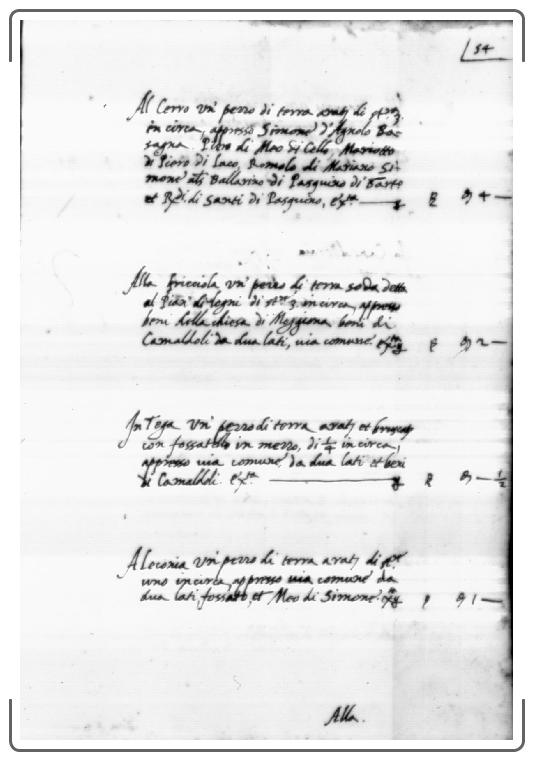 54
Al Cerro un' pezzo di terra arat: di st.re 3.
in circa, appresso Simone d'Agnolo Ba-
segna. Piero di Meo di Cello, Mariotto
di Piero di Laco, Romolo di Mariano Si-
mone als Ballarino di Pasquino di
et di Santi di Pasquino, 4 —
Alla Fricciola un' pezzo di terra soda detta
al Pian di legni di st.re 3. in circa, appresso
beni della chiesa di Moggiona beni di
Camaldoli da dua lati, via comune 2 —
In Tega un' pezzo di terra arat: et
con fossatello in mezzo, di 1/4 in circa,
appresso via comune, da dua lati et beni
di Camaldoli. — 1/2
A un' pezzo di terra arat: di st.re
uno in circa, appresso via comune da
dua lati, fossato, et Meo di Simone 1 —
Alla.